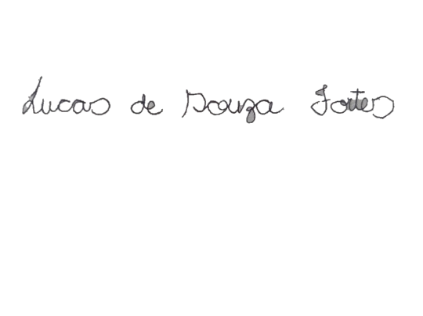 Lucas de Souza Fortes